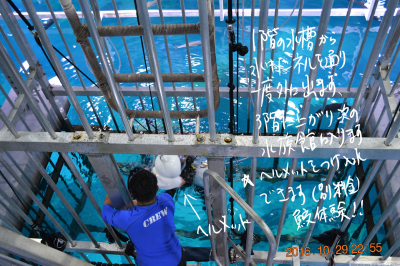 1階の水槽から
トンネルを通り
一度外へ出ます。
3階に上がり次の
水族館に入ります
★ヘルメットをつけ入水
できます(別料金)
貴重体験!!
ヘルメット
CREW
2016 10 29 22 55